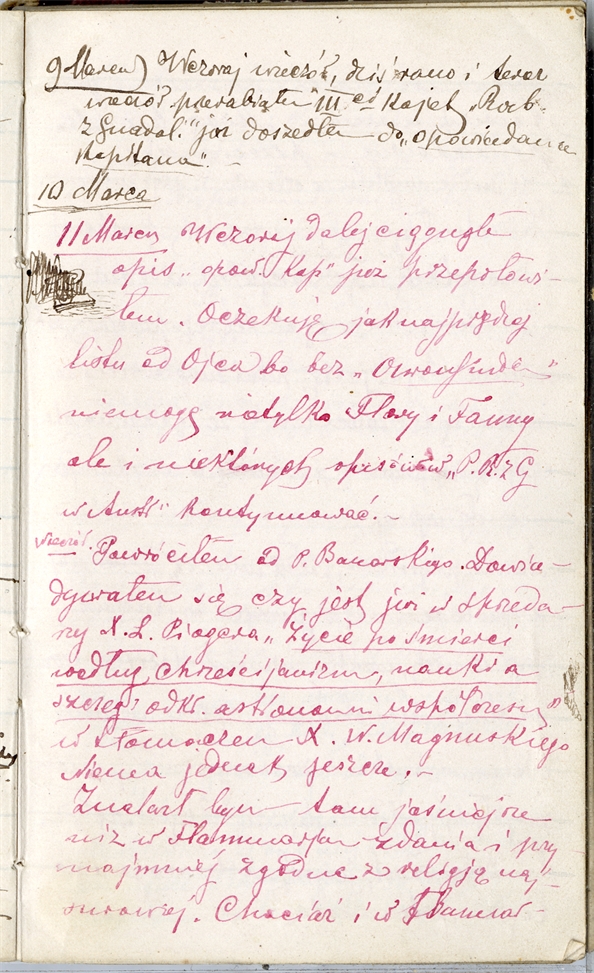 9 Marca) Wczoraj wieczór, dziś rano i teraz
wieczór przerabiałem III.ci Kajet „Rob.
z Gwadal.” już doszedłem do „opowiadania
Kapitana”. –
10 Marca
11 Marca Wczoraj dalej ciągnąłem
opis „opow. Kap” już przepołowi-
łem. Oczekuję jak najprędzej
listu od Ojca bo bez
niemogę nietylko Flory i Fauny
ale i niektórych opisów „P. R. z G
w Austr” kontynuować. –
Wieczór. Powróciłem od P. Banarskiego. Dowia-
dywałem się czy jest już w sprzeda-
ży X. L. Piogera „Życie po śmierci
według chrześcijanizm, nauki a
szczegó odkr. astronomii współczesn”
w tłomaczen X. W. Magnuskiego
Niema jednak jeszcze. –
Znalazł bym tam jaśniejsze
niż w Flammarjon zdania i przy
najmniej zgodne z religją naj-
surowiej. Chociaż i w Flamar-